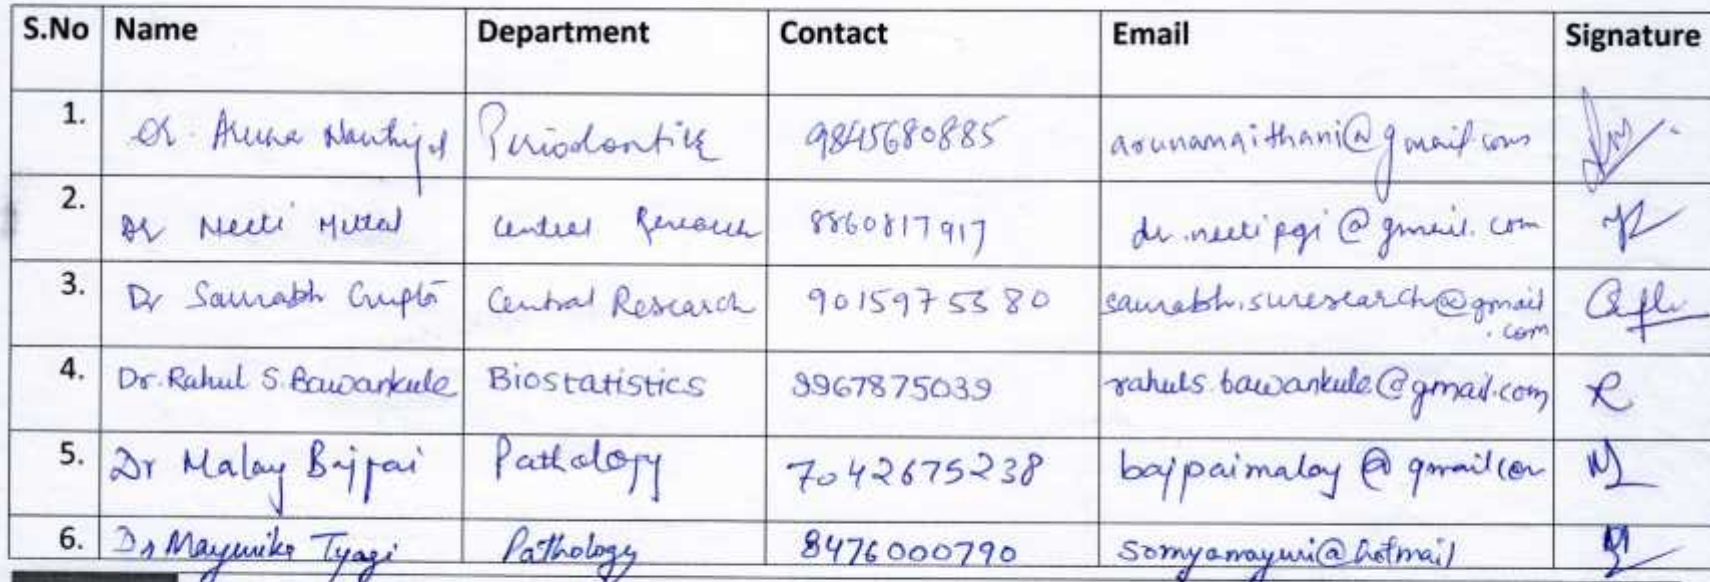 S.No Name Department Contact Email Signature
1. Dr. Aruna Nautiyal Periodontics 9845680885 arunamaithani@gmail.com
2. Dr Neeti Mittal Central Research 8860817917 dr.neetipgi@gmail.com
3. Dr Saurabh Gupta Central Research 9015975380 saurabh.suresearch@gmail
.com
4. Dr. Rahul S. Bawankule Biostatistics 9967875039 rahuls.bawankule@gmail.com
5. Dr Malay Bajpai Pathology 7042675238 bajpaimalay@gmail.com
6. Dr Mayurika Tyagi Pathology 8476000790 somyamayuri@hotmail